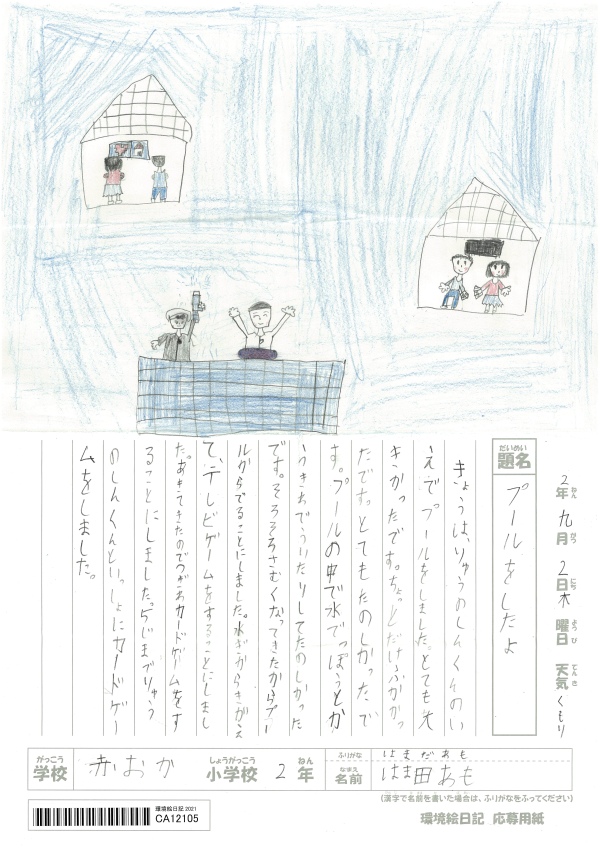 2年 九月 2日 木曜日 天気 くもり
ねん がつ にち ようび てんき
だいめい
題名 プールをしたよ
きょうは、りゅうのしんくんのい
えでプールをしました。とても大
きかったです。ちょっとだけふかかっ
たです。とてもたのしかったで
す。プールの中で水でっぽうとか
うきわでういたりしてたのしかった
です。そろそろさむくなってきたからプー
ルからでることにしました。水ぎからきがえ
て、テレビゲームをすることにしまし
た。あきてきたのでつぎカードゲームをす
ることにしました。5じまでりゅう
のしんくんといっしょにカードゲー
ムをしました。
がっこう
学校 赤おか
しょうがっこう
小学校 2年
ねん
ふりがな はまだあも
なまえ
名前 はま田あも
(漢字で名前を書いた場合は、ふりがなをふってください)
環境絵日記 2021
CA12105
環境絵日記 応募用紙